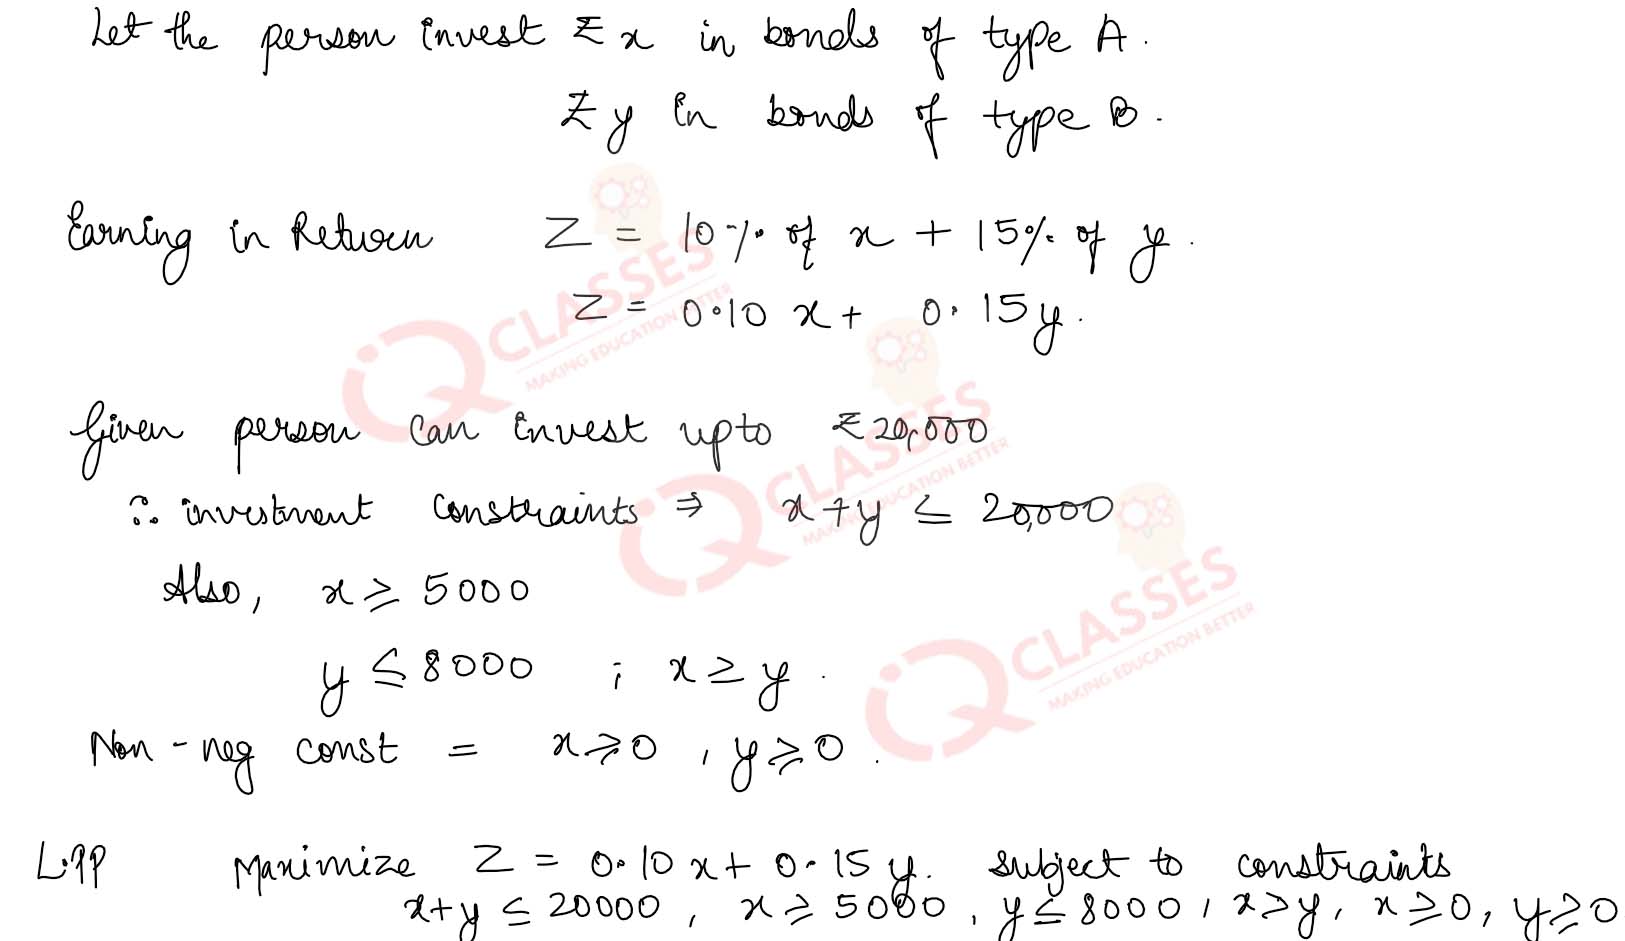 Let the person invest ₹ x in bonds of type A.
₹ y in bonds of type B.
Earning in Return Z = 10% of x + 15% of y.
Z = 0.10 x + 0.15y.
Given person can invest upto ₹20,000
∴ investment constraints ⇒ x+y ≤ 20,000
Also, x ≥ 5000
y ≤ 8000 ; x ≥ y.
Non-neg const = x ≥ 0, y ≥ 0.
L.PP Maximize Z = 0.10 x + 0.15 y. subject to constraints
x+y ≤ 20000, x ≥ 5000, y ≤ 8000, x ≥ y, x ≥ 0, y ≥ 0
iQ CLASSES
MAKING EDUCATION BETTER
iQ CLASSES
MAKING EDUCATION BETTER
iQ CLASSES
MAKING EDUCATION BETTER